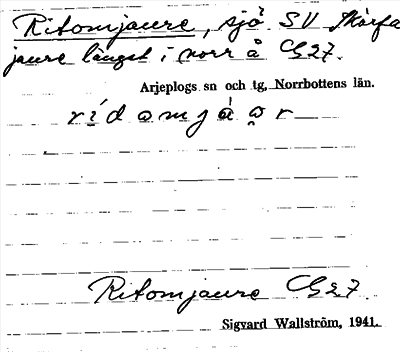 Ritomjaure, sjö SV Skärfa
jaure längst i norr å G27.
Arjeplogs sn och tg, Norrbottens län.
rídomjàǫr
Ritomjaure G27.
Sigvard Wallström, 1941.